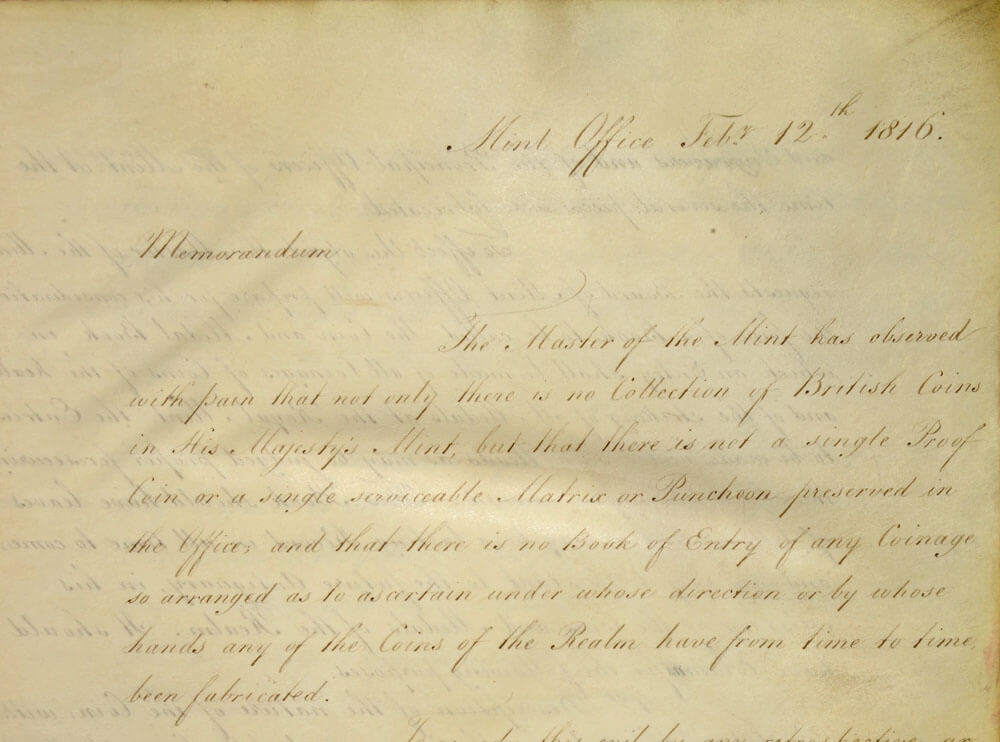 Mint Office Feb.y 12.th 1816.
Memorandum
The Master of the Mint has observed
with pain that not only there is no Collection of British Coins
in His Majesty's Mint, but that there is not a single Proof
Coin or a single serviceable Matrix or Puncheon preserved in
the Office; and that there is no Book of Entry of any Coinage
so arranged as to ascertain under whose direction or by whose
hands any of the Coins of the Realm have from time to time,
been fabricated.
this evil by any retrospective